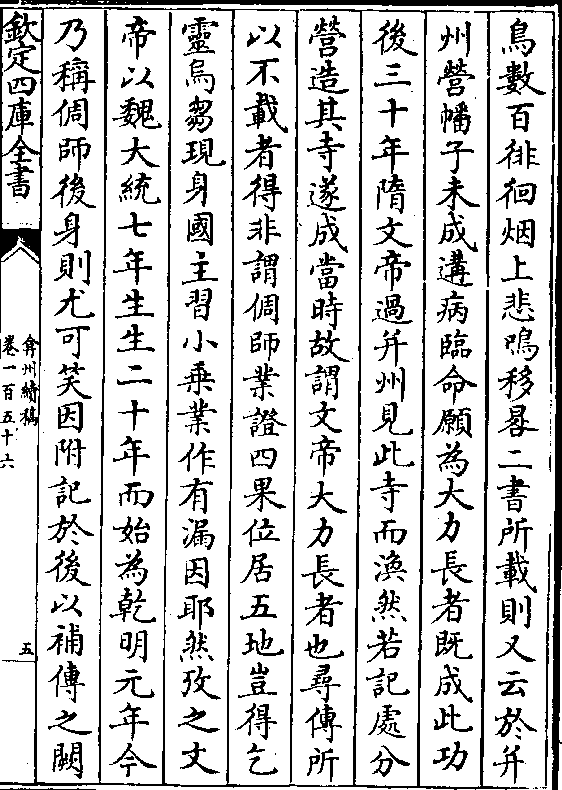 鳥數百徘徊烟上悲鳴移晷二書所載則又云於并
州營幡子未成遘病臨命願為大力長者既成此功
後三十年隋文帝過并州見此寺而渙然若記處分
營造其寺遂成當時故謂文帝大力長者也尋傳所
以不載者得非謂倜師業證四果位居五地豈得乞
靈烏芻現身國主習小乗業作有漏因耶然攷之文
帝以魏大統七年生生二十年而始為乾明元年今
乃稱倜師後身則尤可笑因附記於後以補傳之闕
欽定四庫全書
弇州續稿
卷一百五十六
五